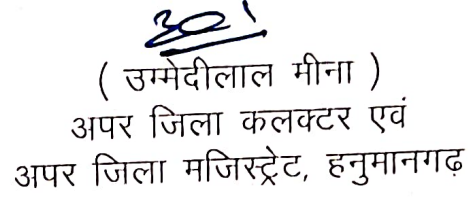 ( उम्मेदीलाल मीना )
अपर जिला कलक्टर एवं
अपर जिला मजिस्ट्रेट, हनुमानगढ़